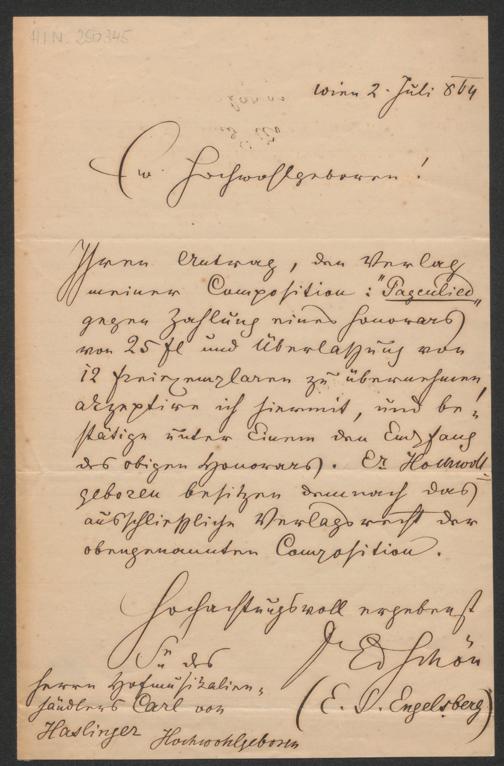 HIN. 250345
Wien 2. Juli 864
Ew. Hochwohlgeboren!
Ihren Antrag, den Verlag
meiner Composition: "Pagenlied"
gegen Zahlung eines Honorars
von 25 fl und Überlassung von
12 Freiexemplaren zu übernehmen,
akzeptire ich hiermit, und be-
stätige unter Einem den Empfang
des obigen Honorars. Er Hochwohl-
geboren besitzen demnach das
ausschließliche Verlagsrecht der
obengenannten Composition.
Hochachtungsvoll ergebenst
Dr Ed Schön
(E. S. Engelsberg)
des
Herrn Hofmusikalien-
händlers Carl von
Haslinger Hochwohlgeboren